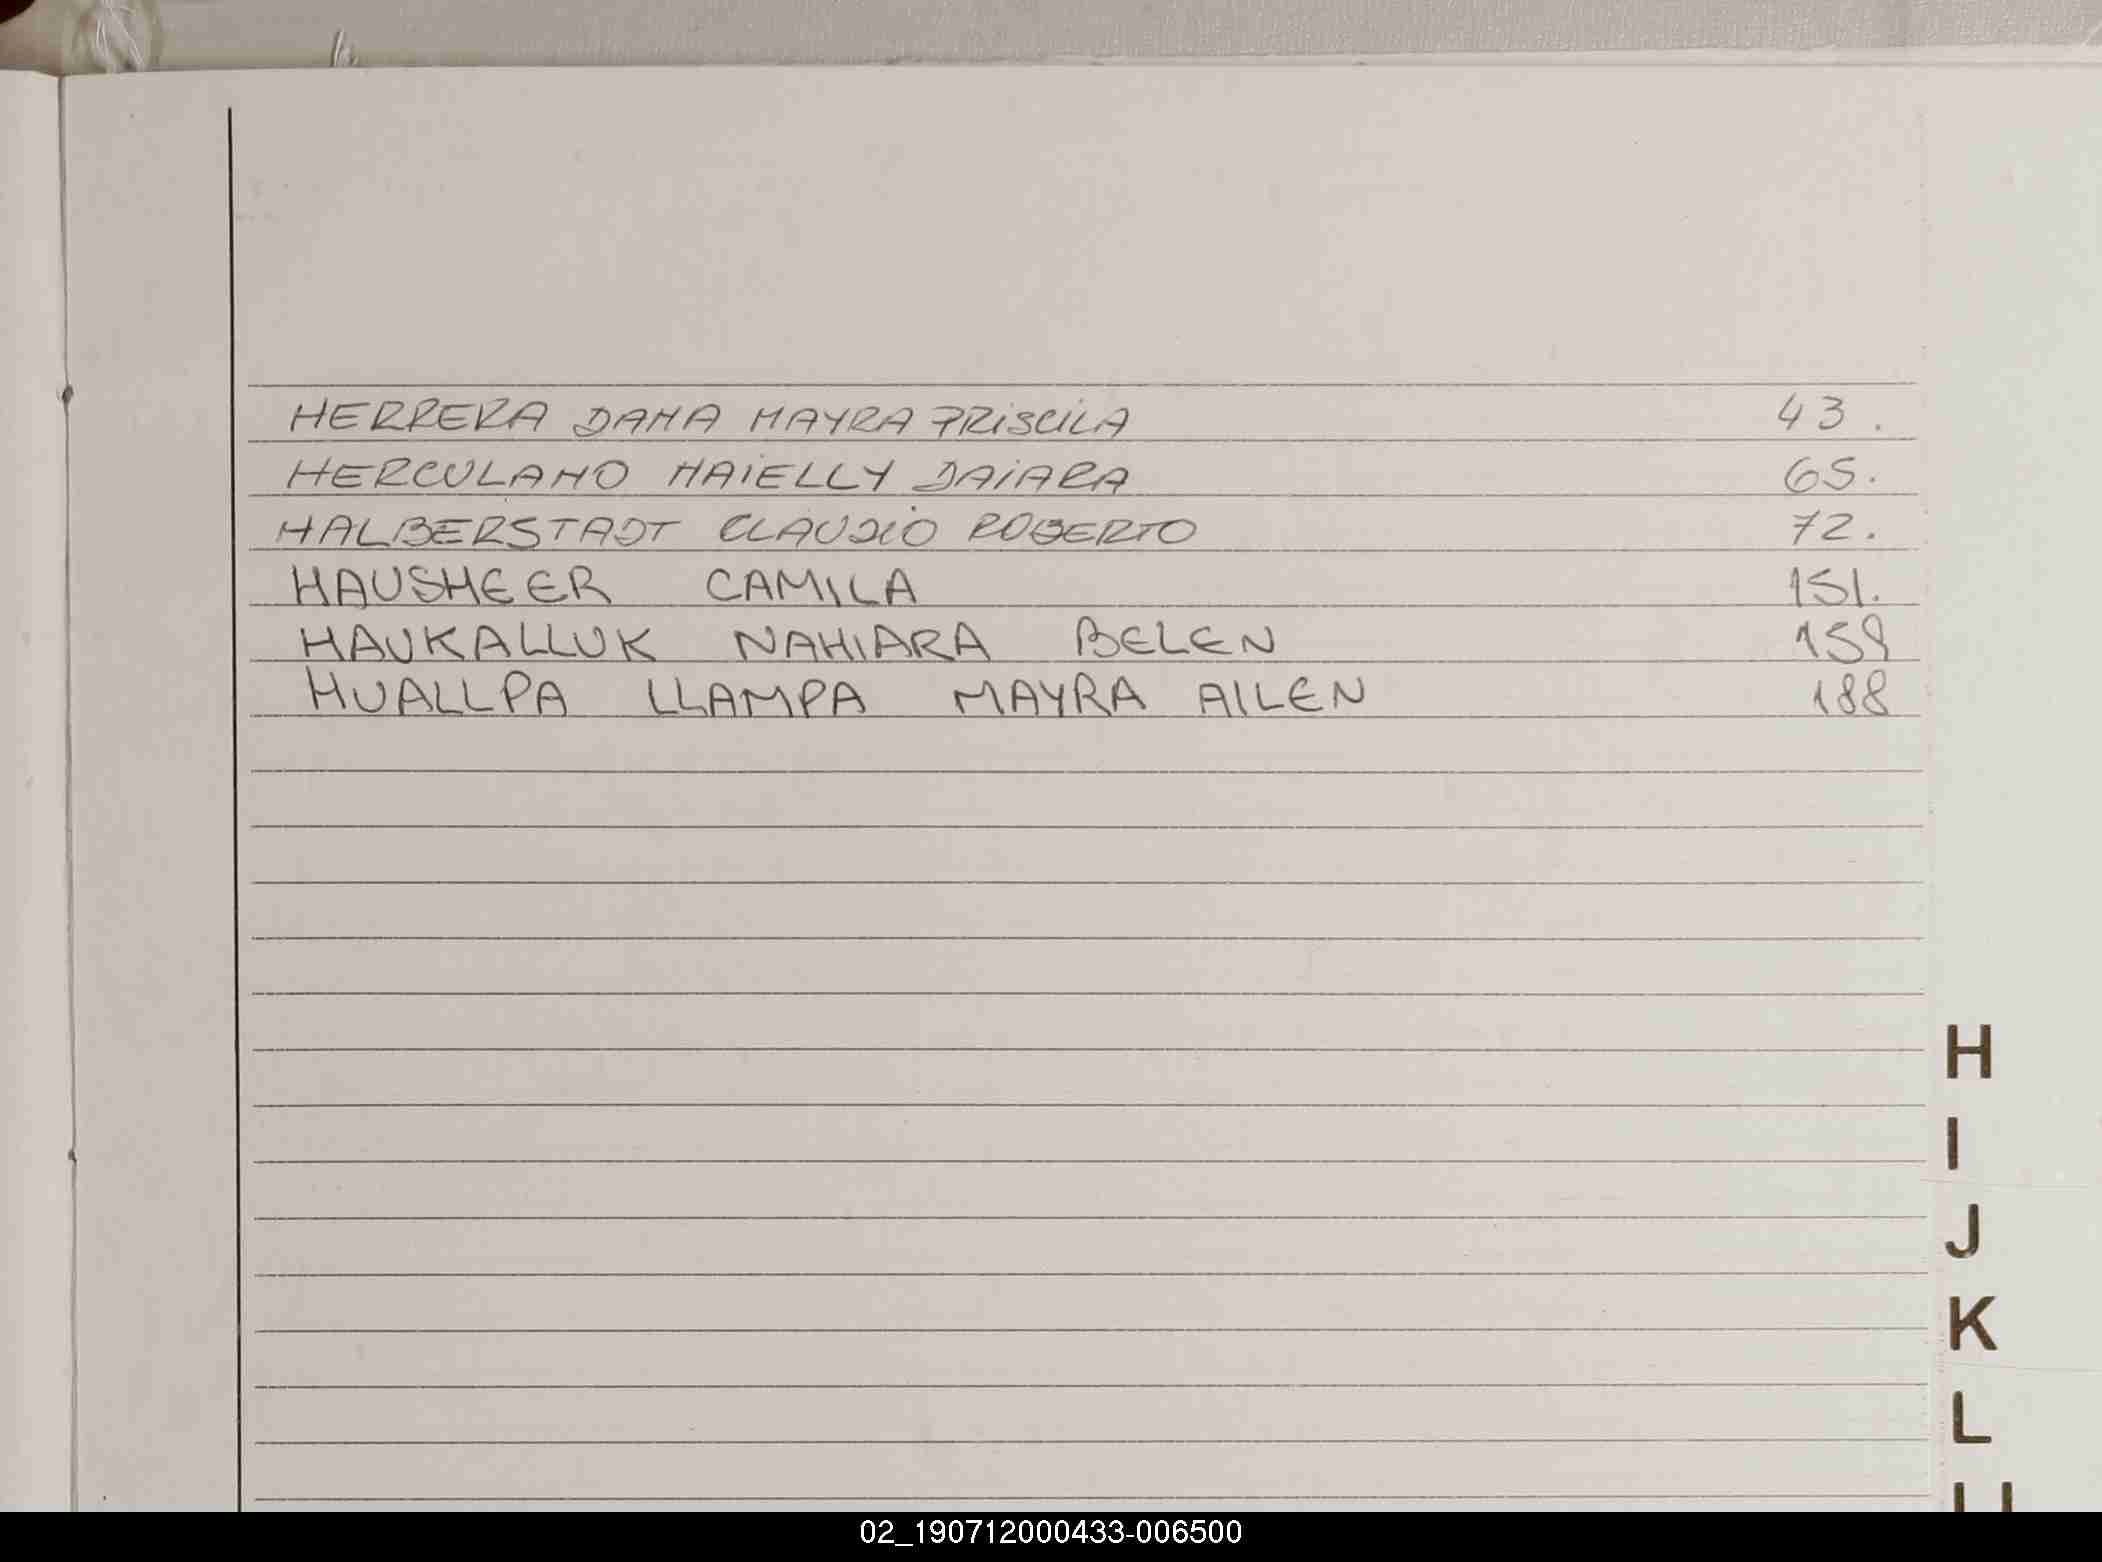 HERRERA DANA MAYRA PRISCILA 43.
HERCULANO NAIELLY DAIARA 65.
HALBERSTADT CLAUDIO ROBERTO 72.
HAUSHEER CAMILA 151.
HAUKALLUK NAHIARA BELEN 159
HUALLPA LLAMPA MAYRA AILEN 188
H
I
J
K
L
02_190712000433-006500